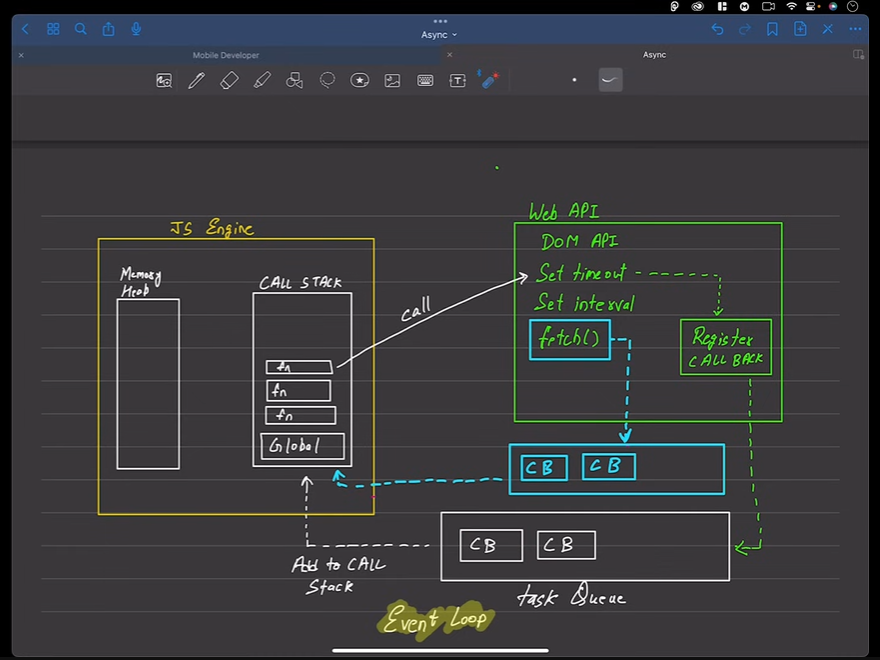 Async
Mobile Developer
Async
JS Engine
Memory
Heab
CALL STACK
fn
fn
fn
Global
call
Web API
DOM API
Set timeout
Set interval
fetch()
Register
CALL BACK
CB
CB
CB
CB
Add to CALL
Stack
task Queue
Event Loop